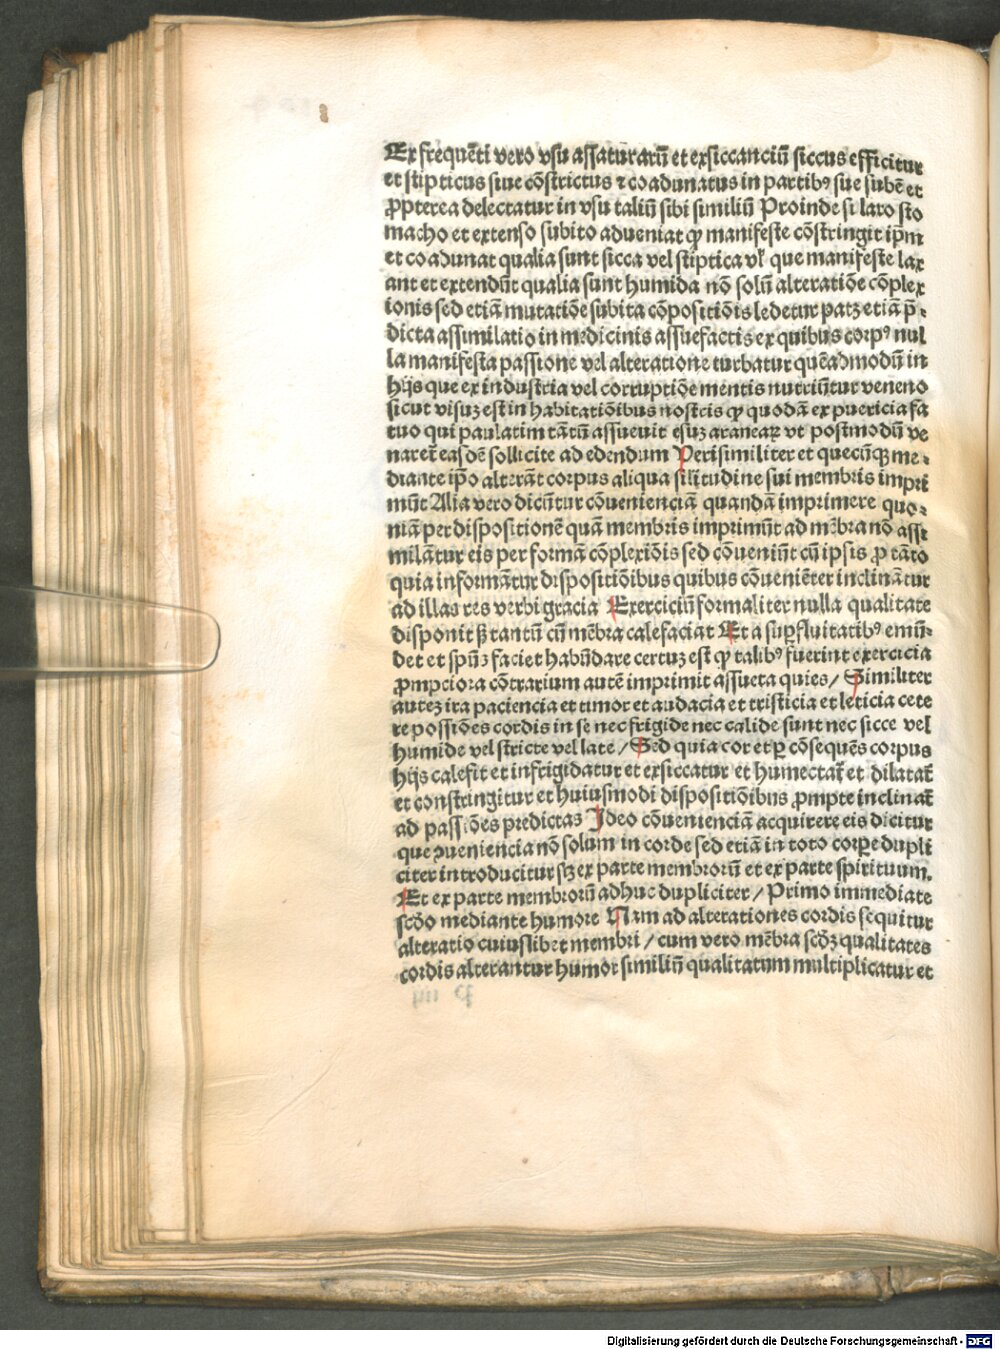 Ex frequẽti vero vsu assaturarũ et exsiccanciũ siccus efficitur
et stipticus siue cõstrictus ⁊ coadunatus in partibꝰ sue subẽ et
ꝓpterea delectatur in vsu taliũ sibi similiũ Proinde si laxo sto
macho et extenso subito adueniat ꝙ manifeste cõstringit ip̃m
et coadunat qualia sunt sicca vel stiptica vl̕ que manifeste lax
ant et extendũt qualia sunt humida nõ solũ alteratiõe cõplex
ionis sed etiã mutatiõe subita cõpositiõis ledetur patꝫ etiã p̃⸗
dicta assimilatio in medicinis assuefactis ex quibus corpꝰ nul
la manifesta passione vel alteratione turbatur quẽadmodũ in
hijs que ex industria vel corruptiõe mentis nutriũtur veneno
sicut visuꝫ est in habitatiõibus nostris ꝙ quodã ex puericia fa
tuo qui paulatim tãtũ assueuit esuꝫ araneaꝝ vt postmodũ ve
naret̃ easdẽ sollicite ad edendum Perisimiliter et quecũqꝫ me⸗
diante ip̃o alterãt corpus aliqua sil̃itudine sui membris impri
mũt Alia vero dicũtur cõuenienciã quandã imprimere quo⸗
niã per dispositionẽ quã membris imprimũt ad mẽbra nõ assi
milãtur eis per formã cõplexiõis sed cõueniũt cũ ipsis ꝓ tãto
quia informãtur dispositiõibus quibus cõueniẽter inclinãtur
ad illas res verbi gracia Exerciciũ formaliter nulla qualitate
disponit sꝫ tantũ cũ mẽbra calefaciat Et a suꝑfluitatibꝰ emũ⸗
det et spũꝫ faciet habũdare certuꝫ est ꝙ talibꝰ fuerint exercicia
ꝓmpciora cõtrarium autẽ imprimit assueta quies/ Similiter
auteꝫ ira paciencia et timor et audacia et tristicia et leticia cete
re possiões cordis in se nec frigide nec calide sunt nec sicce vel
humide vel stricte vel late/ Sed quia cor et ꝑ cõsequẽs corpus
hijs calefit et infrigidatur et exsiccatur et humectat̃ et dilatat̃
et constringitur et huiusmodi dispositiõibus ꝓmpte inclinat̃
ad passiões predictas Ideo cõuenienciã acquirere eis dicitur
que ꝯueniencia nõ solum in corde sed etiã in toto corꝑe dupli
citer introducitur sꝫ ex parte membrorũ et ex parte spirituum.
Et ex parte membrorũ adhuc dupliciter/ Primo immediate
scd̕o mediante humore Nam ad alterationes cordis sequitur
alteratio cuiuslibet membri/ cum vero mẽbra scd̕ꝫ qualitates
cordis alterantur humor similiũ qualitatum multiplicatur et
Digitalisierung gefördert durch die Deutsche Forschungsgemeinschaft - DFG